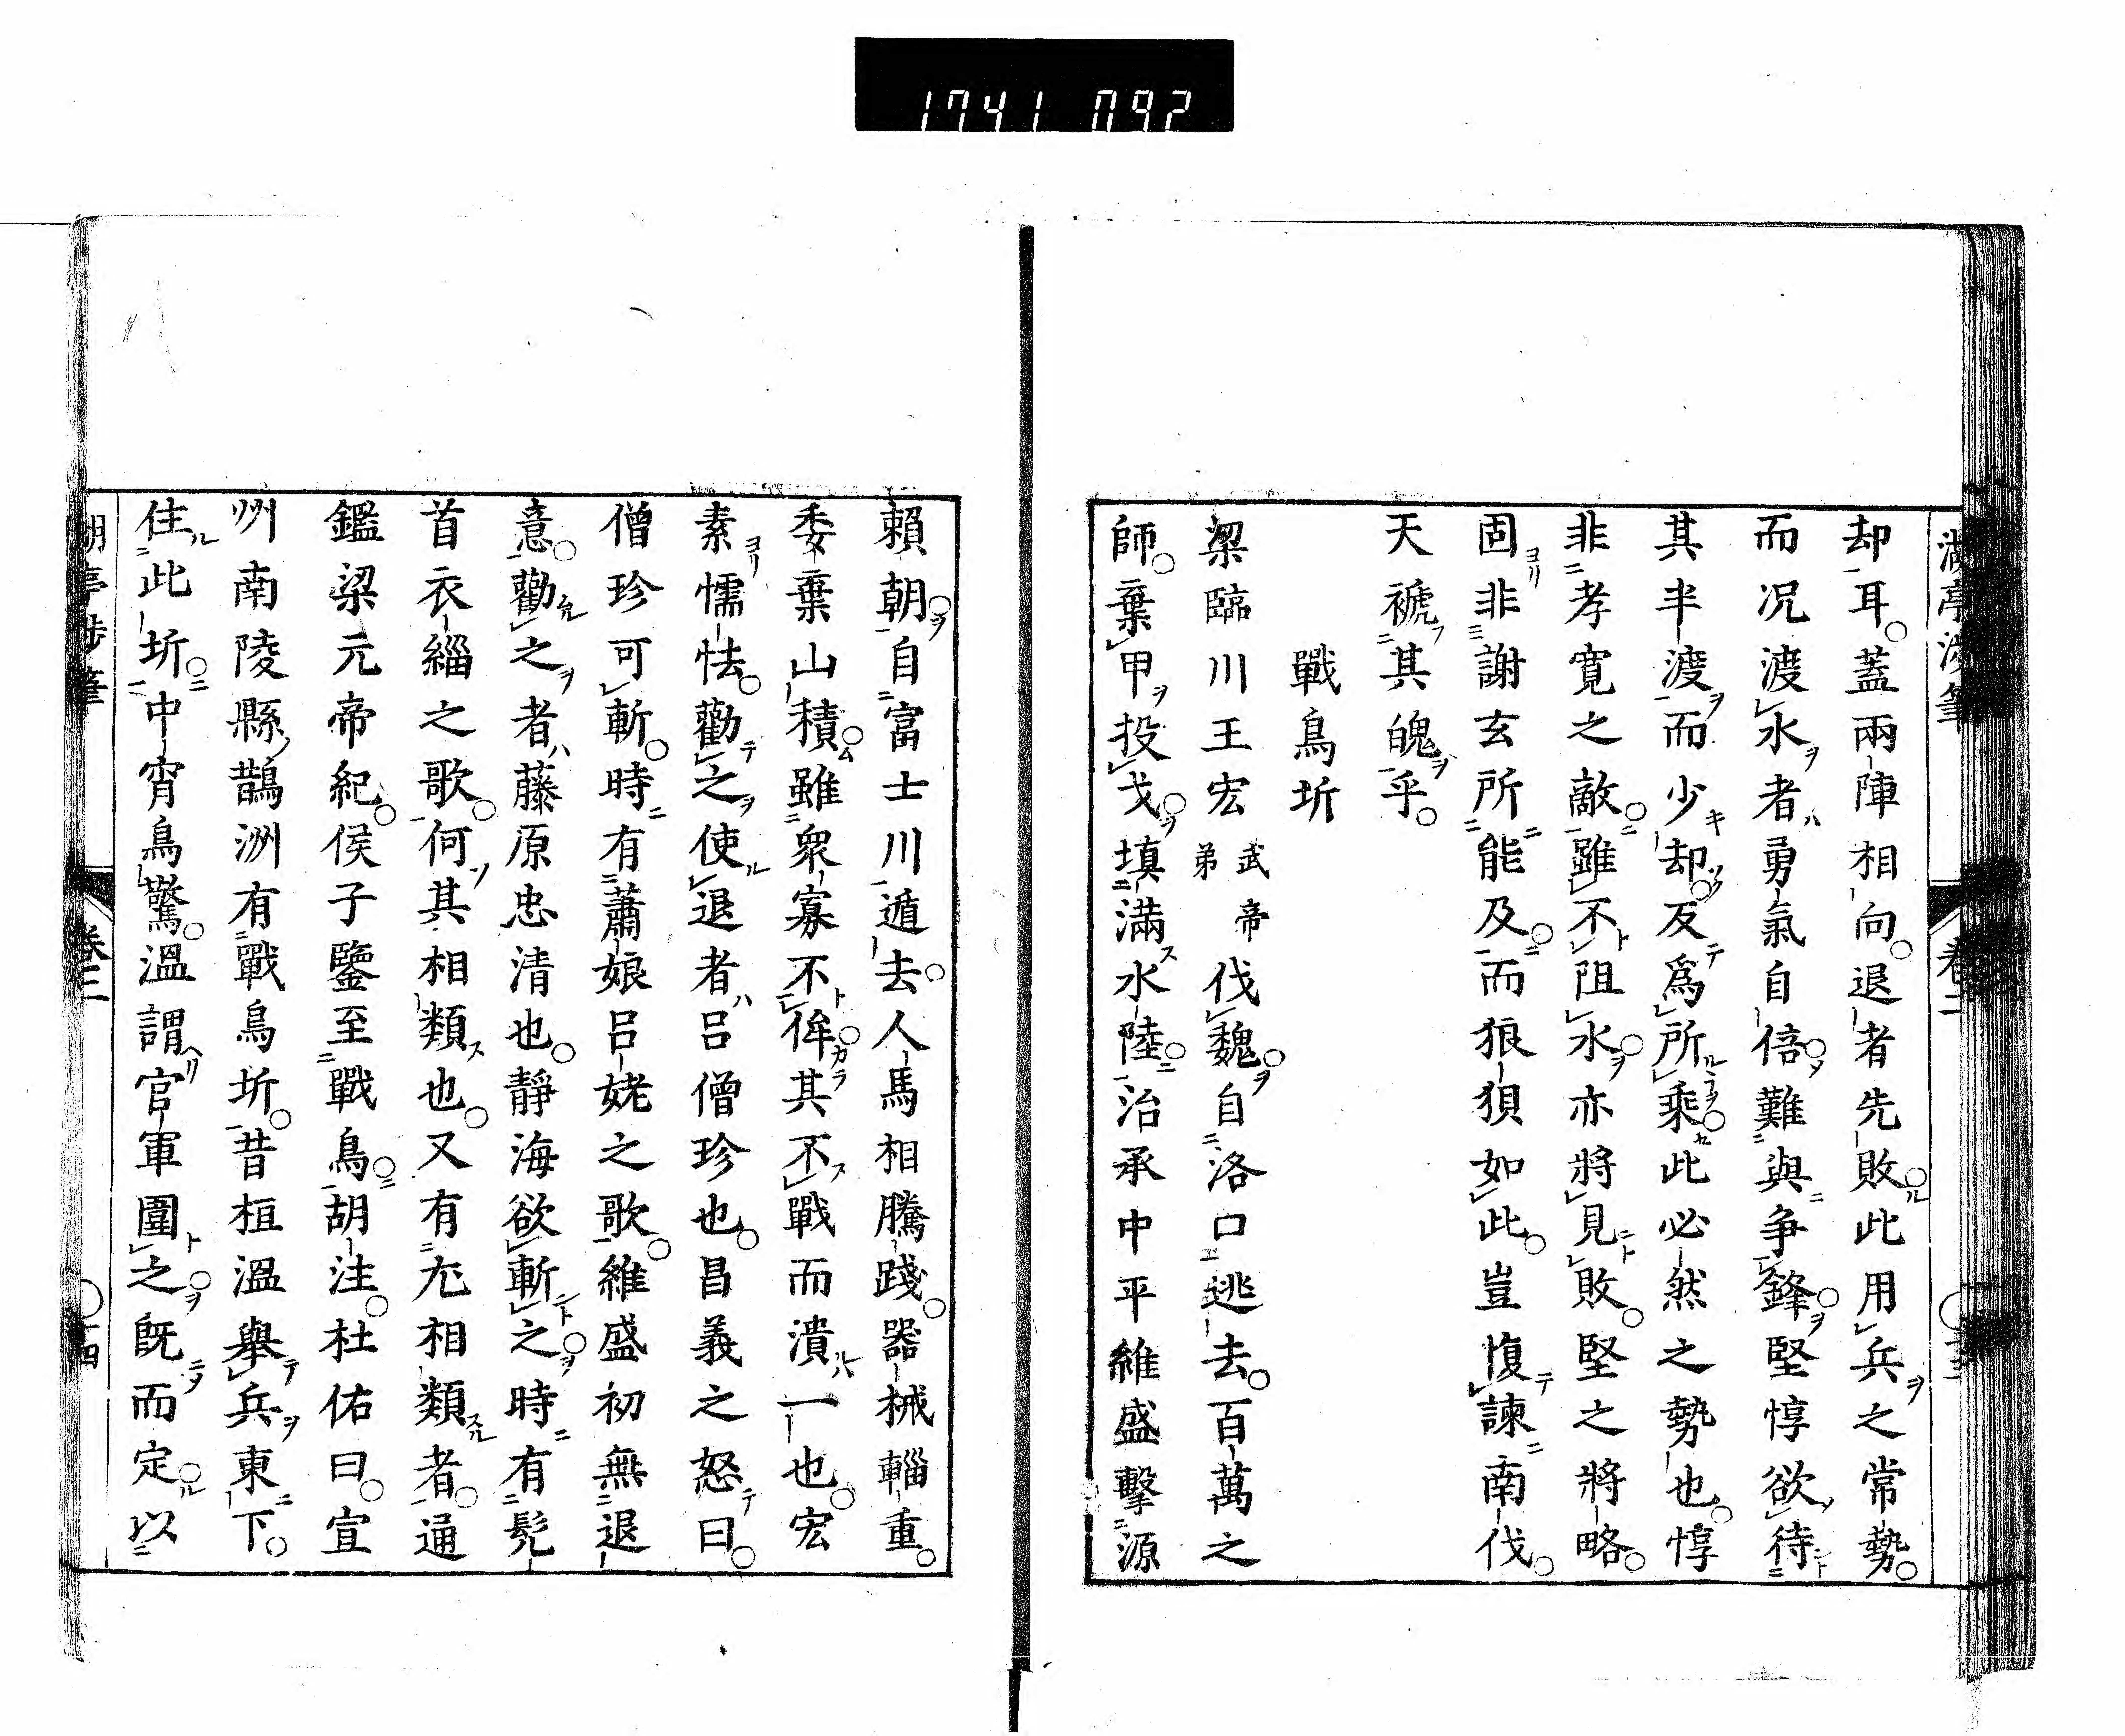 1741 092
却耳蓋兩陣相向退者先敗此用兵之常勢
而况渡水者勇氣自倍難與争鋒堅惇欲待
其半渡而少却反爲所乘此必然之勢也惇
非孝寛之敵雖不阻水亦將見敗堅之將略
固非謝玄所能及而狼狽如此豈愎諫南伐
天褫其魄乎
戰鳥圻
梁臨川王宏武帝弟伐魏自洛口逃去百萬之
師棄甲投戈填滿水陸治承中平維盛擊源
賴朝自富士川遁去人馬相騰踐器械輜重
委棄山積雖衆寡不侔其不戰而潰一也宏
素懦怯勸之使退者呂僧珍也昌義之怒曰
僧珍可斬時有蕭娘呂姥之歌維盛初無退
意勸之者藤原忠清也靜海欲斬之時有髠
首衣緇之歌何其相類也又有尤相類者通
鑑梁元帝紀侯子鑒至戰鳥胡注杜佑曰宣
州南陵縣鵲洲有戰鳥圻昔桓溫舉兵東下
住此圻中宵鳥驚溫謂官軍圍之既而定以